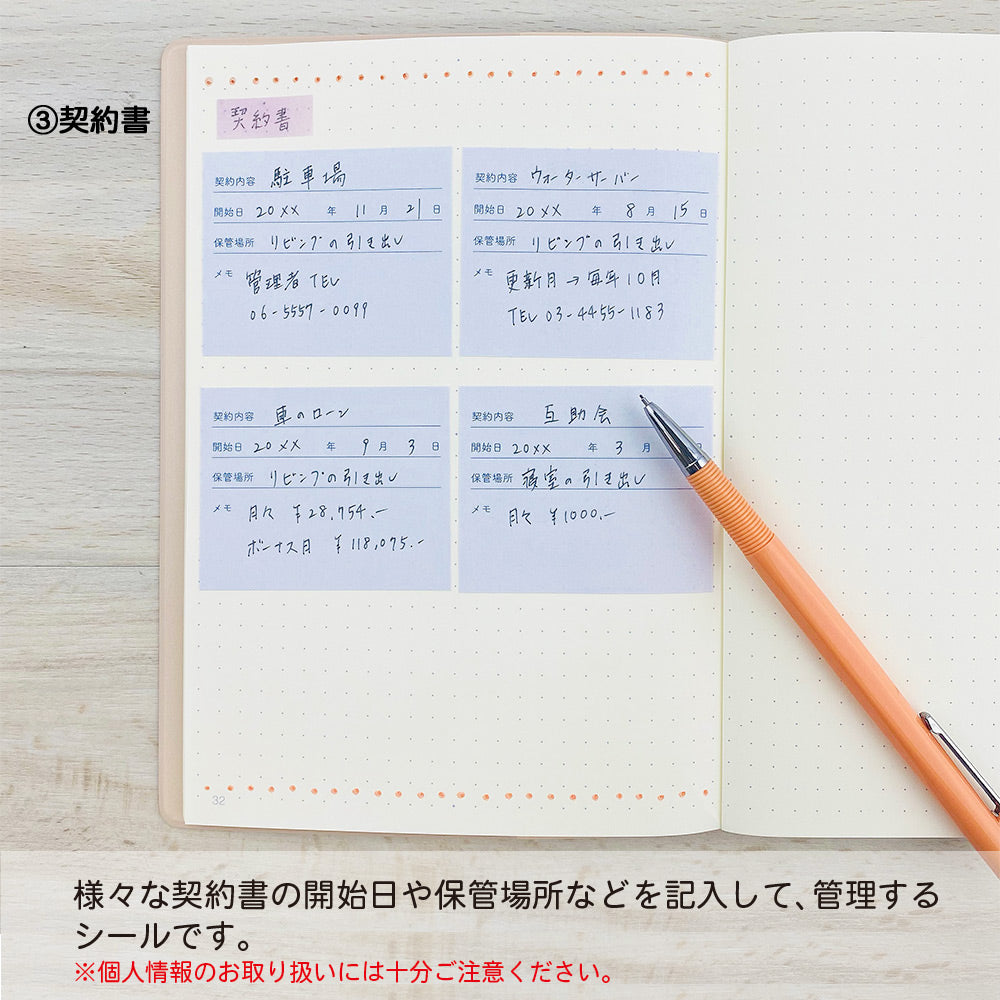 ③契約書
契約書
契約内容 駐車場
開始日 20XX 年 11 月 21 日
保管場所 リビングの引き出し
メモ 管理者 TEL
06-5557-0099
契約内容 ウォーターサーバー
開始日 20XX 年 8 月 15 日
保管場所 リビングの引き出し
メモ 更新月→毎年10月
TEL 03-4455-1183
契約内容 車のローン
開始日 20XX 年 9 月 3 日
保管場所 リビングの引き出し
メモ 月々 ¥28,754.-
ボーナス月 ¥118,075.-
契約内容 互助会
開始日 20XX 年 3 月
保管場所 寝室の引き出し
メモ 月々 ¥1000.-
32
様々な契約書の開始日や保管場所などを記入して、管理する
シールです。
※個人情報のお取り扱いには十分ご注意ください。